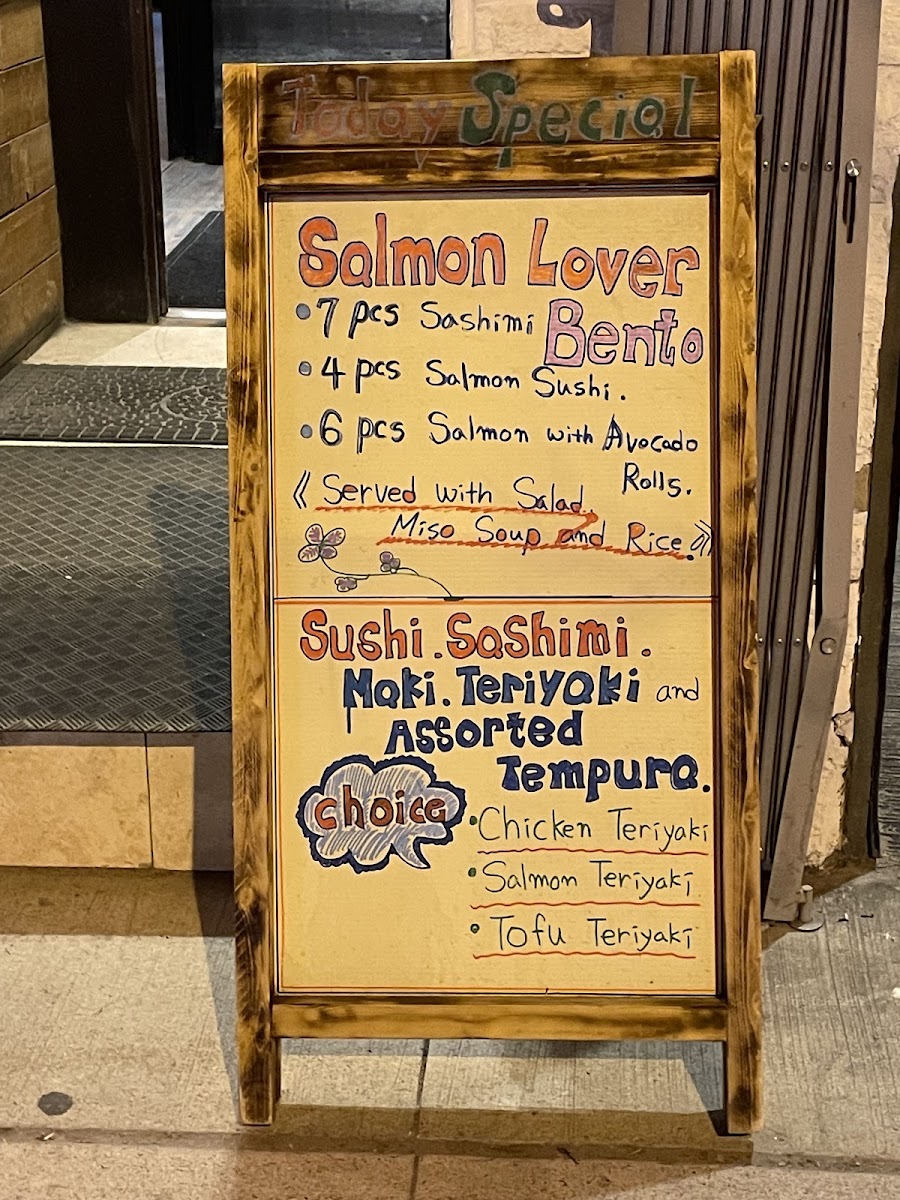 Today Special
Salmon Lover
Bento
• 7 pcs Sashimi
• 4 pcs Salmon Sushi.
• 6 pcs Salmon with Avocado
Rolls.
《 Served with Salad.
Miso Soup and Rice. 》
Sushi. Sashimi.
Maki. Teriyaki and
Assorted
Tempura.
choice
• Chicken Teriyaki
• Salmon Teriyaki
• Tofu Teriyaki